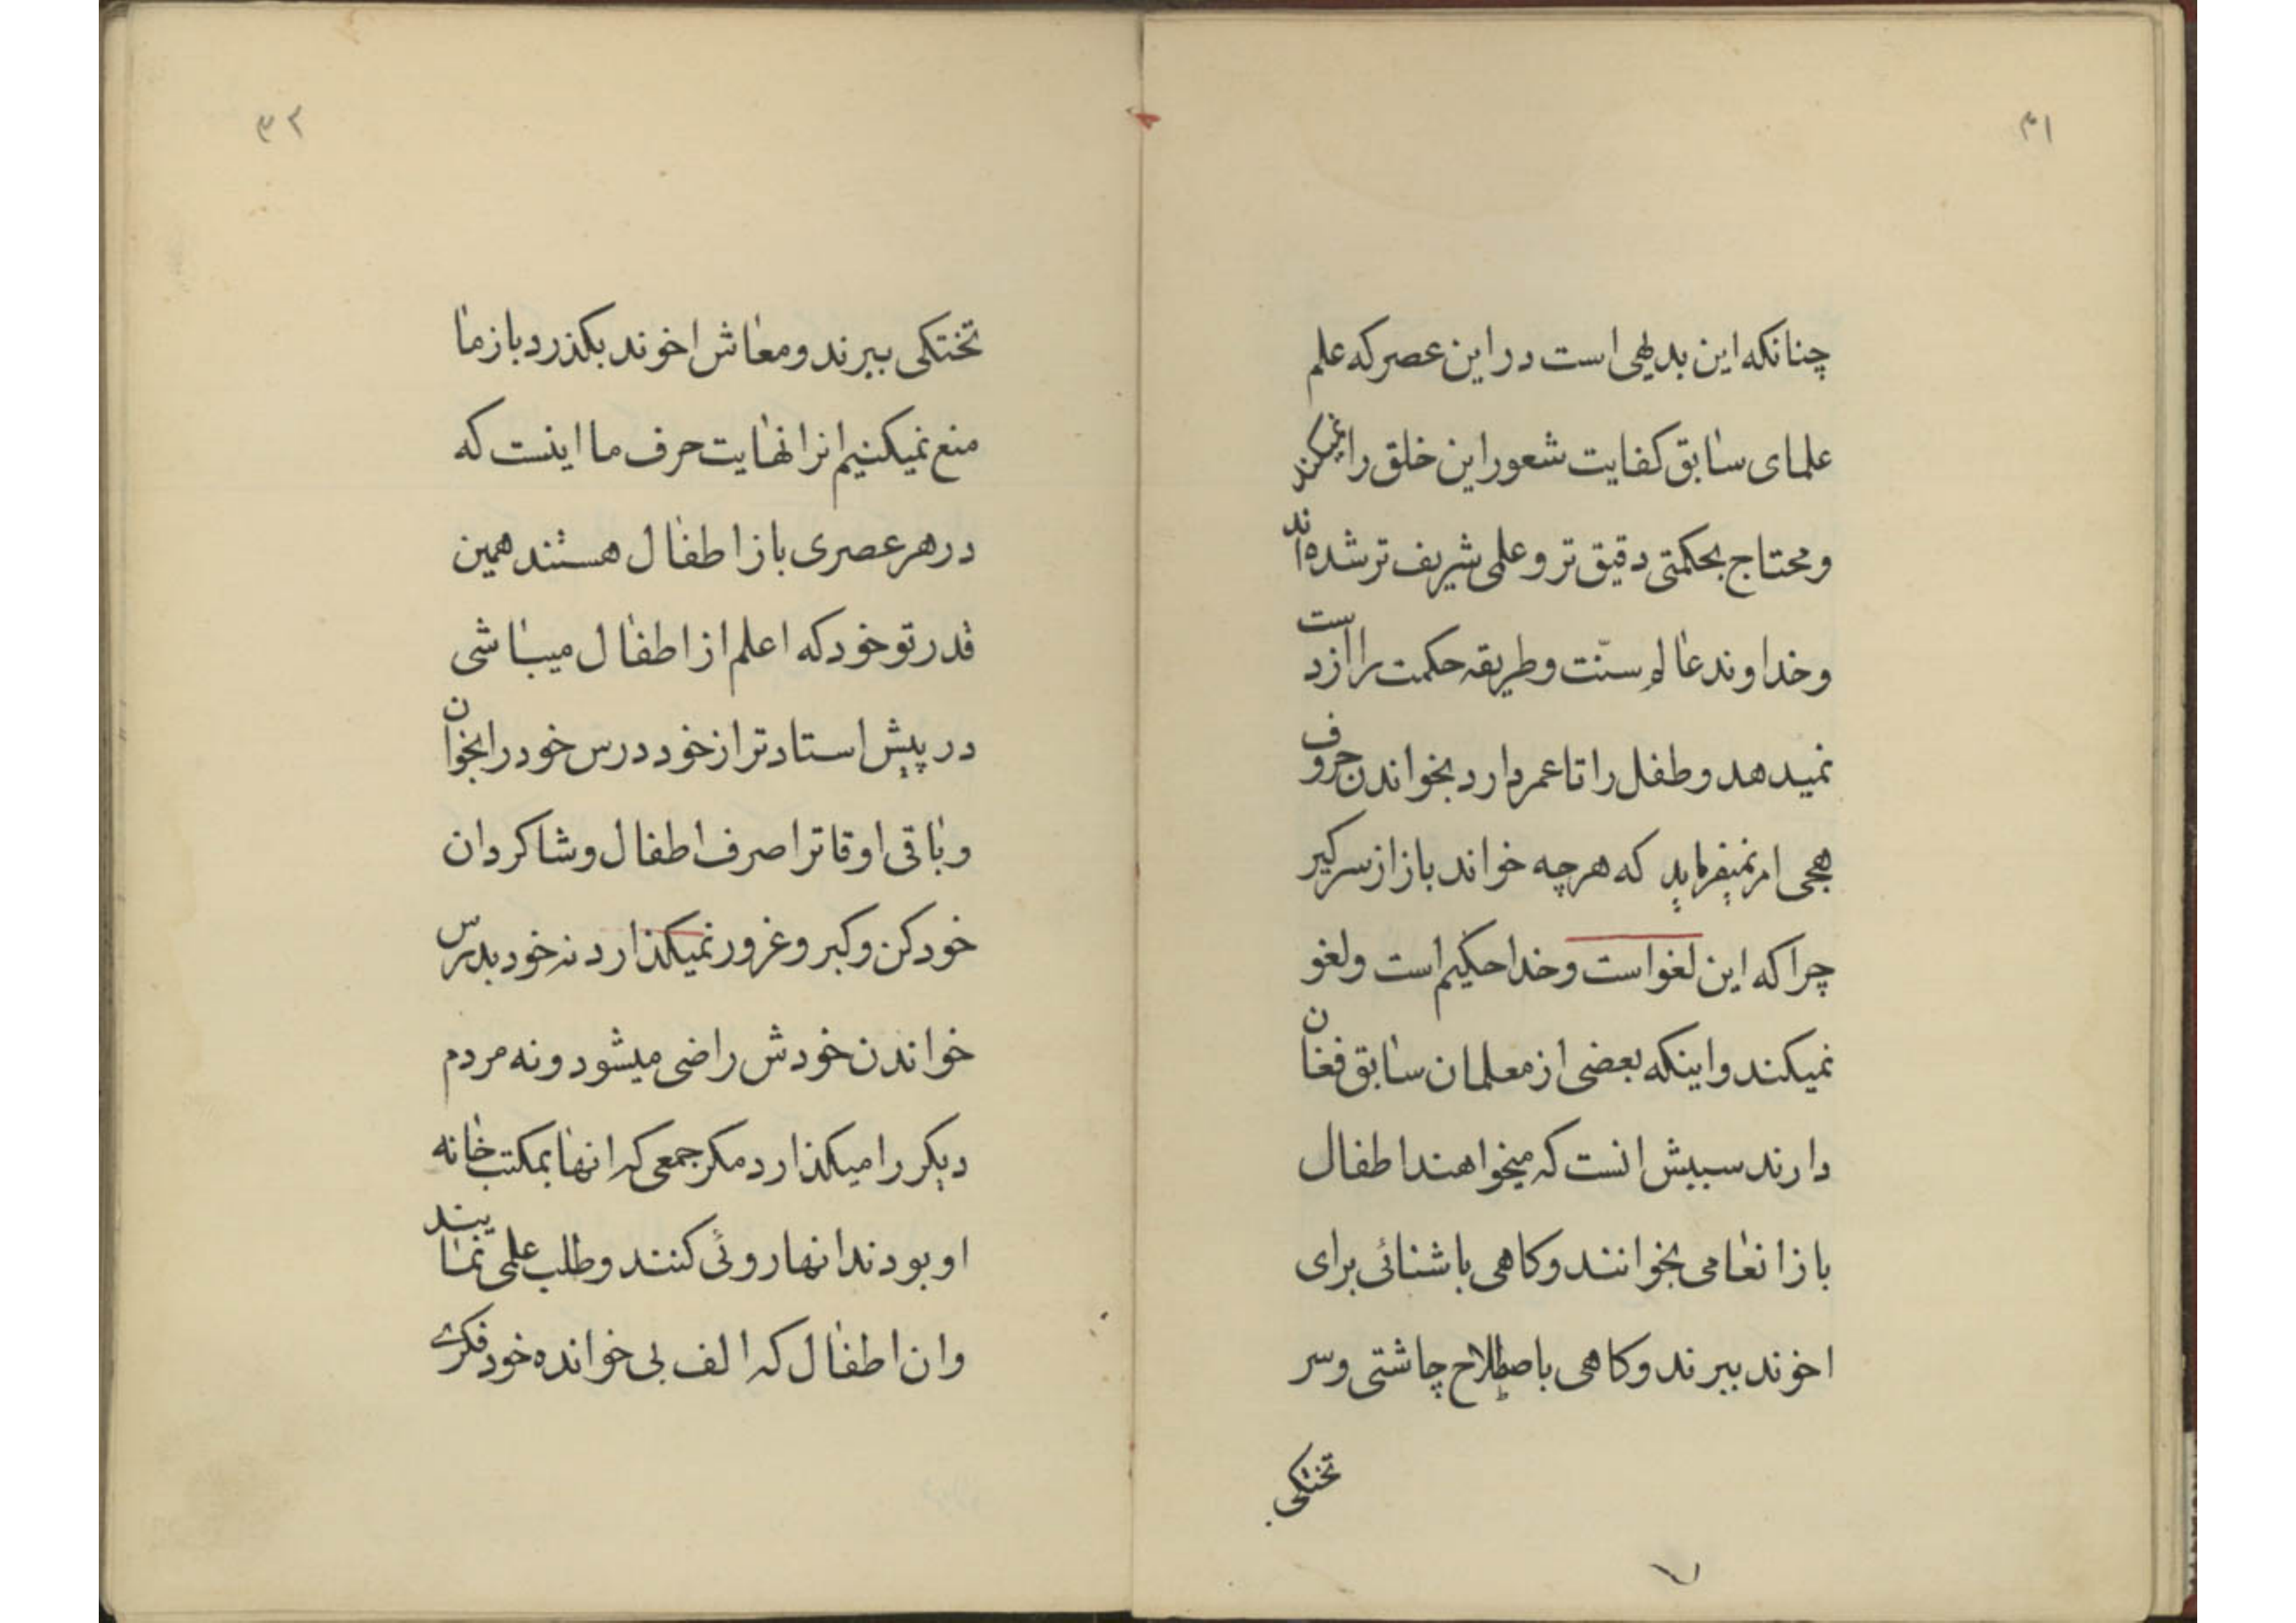 ۳۱
چنانکه این بدیهی است در این عصر که علم
علمای سابق کفایت شعور این خلق را نمیکند
و محتاج بحکمتی دقیق تر و علمی شریف تر شده‌اند
و خداوند عالم سنّت و طریقه حکمت را از دست
نمیدهد و طفل را تا عمر دارد بخواندن حروف
هجی امر نمیفرماید که هرچه خواند باز از سر گیر
چرا که این لغو است و خدا حکیم است و لغو
نمیکند و اینکه بعضی از معلمان سابق فغان
دارند سببش انست که میخواهند اطفال
باز انعامی بخوانند و کاهی باشنائی برای
اخوند ببرند و کاهی باصطلاح چاشتی و سر
تختکی
۳۲
تختکی ببرند و معاش اخوند بکذرد باز ما
منع نمیکنیم نزا نهایت حرف ما اینست که
در هر عصری باز اطفال هستند همین
قدر تو خود که اعلم از اطفال میباشی
در پیش استادتر از خود درس خود را بخوان
و باقی اوقاترا صرف اطفال و شاکردان
خود کن و کبر و غرور نمیکذارد نه خود بدرس
خواندن خودش راضی میشود و نه مردم
دیکر را میکذارد مکر جمعی که انها بمکتب خانه
او بودند انها روئی کنند و طلب علمی نمایند
وان اطفال که الف بی خوانده خود فکری